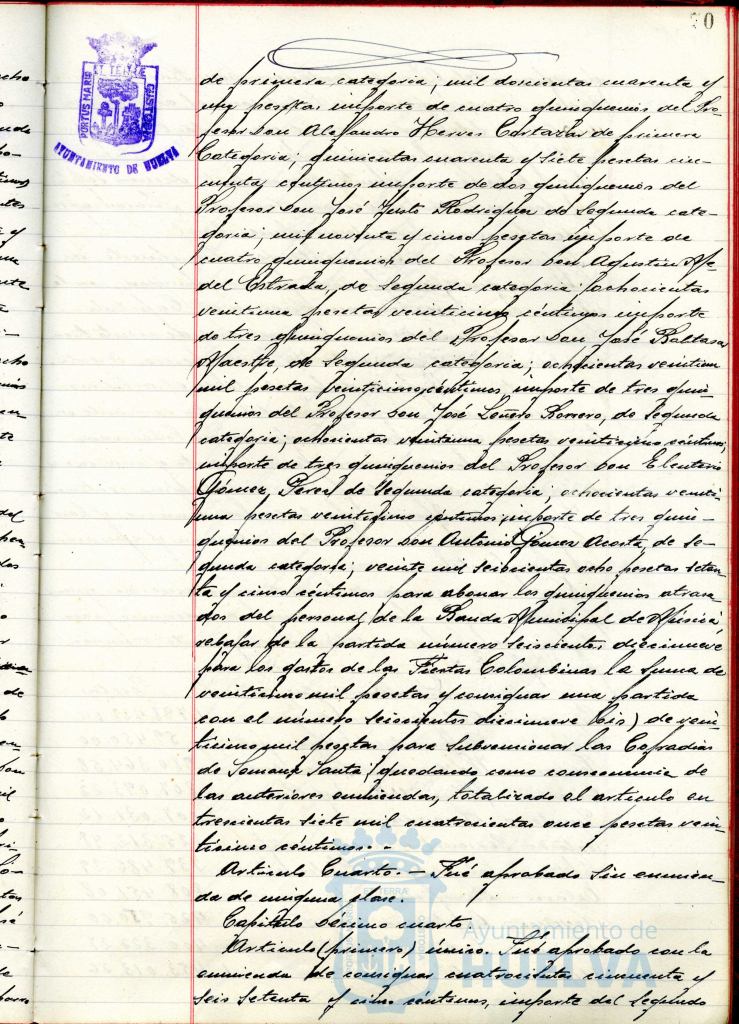 70
PORTUS MARIS ET TERRÆ CUSTODIA
AYUNTAMIENTO DE HUELVA
de primera categoria; mil doscientas cuarenta y
una pesetas importe de cuatro quinquenios del Pro-
fesor Don Alejandro Hervas Cortazar de primera
Categoria; quinientas cuarenta y siete pesetas cin-
cuenta centimos importe de dos quinquenios del
Profesor Don José Justo Rodriguez de Segunda cate-
goria; mil noventa y cinco pesetas importe de
cuatro quinquenios del Profesor Don Agustin Me-
del Estrada, de Segunda categoria; ochocientas
veintiuna pesetas veinticinco céntimos importe
de tres quinquenios del Profesor Don José Baltasar
Maestre, de Segunda categoria; ochocientas veintiun
mil pesetas veinticinco céntimos, importe de tres quin-
quenios del Profesor Don José Romero, de Segunda
categoria; ochocientas veintiuna pesetas veinticinco céntimos,
importe de tres quinquenios del Profesor Don Eleuterio
Gómez Perez de Segunda categoria; ochocientas veinti-
una pesetas veinticinco centimos, importe de tres quin-
quenios del Profesor Don Antonio Gómez Acosta, de Se-
gunda categoria; veinte mil seiscientas ocho pesetas seten-
ta y cinco céntimos para abonar los quinquenios atrasa-
dos del personal de la Banda Municipal de Música
rebajar de la partida número seiscientos diecinueve
para los gastos de las Fiestas Colombinas la suma de
veinticinco mil pesetas y consignar una partida
con el número seiscientos diecinueve (bis) de vein-
ticinco mil pesetas para subvencionar las Cofradias
de Semana Santa; quedando como consecuencia de
las anteriores enmiendas, totalizado el articulo en
trescientas siete mil cuatrocientas once pesetas vein-
ticinco céntimos. -
Articulo Cuarto. - Fué aprobado sin enmien-
da de ninguna clase.
Capitulo decimo cuarto
Articulo (primero) único. Fué aprobado con la
enmienda de consignar cuatrocientas cincuenta y
seis setenta y cinco céntimos, importe del segundo
Ayuntamiento de
HUELVA